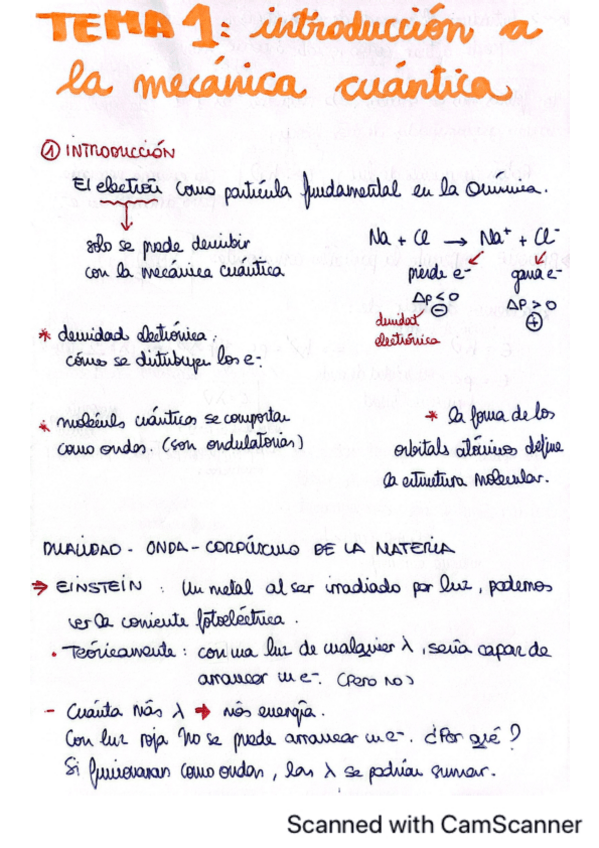 TEMA 1: introducción a
la mecánica cuántica
① INTRODUCCIÓN
El electrón como partícula fundamental en la Química.
solo se puede describir
con la mecánica cuántica
Na + Cl → Na⁺ + Cl⁻
pierde e⁻ gana e⁻
ΔP<0 ΔP>0
⊖ ⊕
densidat
electrónica
* densidad electrónica:
cómo se ditribuyen los e⁻.
* moléculs cuánticas se comportan
como ondas. (son ondulatorias)
* la forma de los
orbitals atómicos define
la estructura molecular.
DUALIDAD - ONDA - CORPÚSCULO DE LA MATERIA
→ EINSTEIN : Un metal al ser irradiado por luz, podemos
ver la corriente fotoeléctrica.
• Teóricamente: con una luz de cualquier λ, sería capaz de
arrancar un e⁻. (PERO NO)
- Cuánta más λ → más energía.
Con luz roja no se puede arrancar un e⁻. ¿Por qué?
Si funcionaran como ondas, las λ se podrían sumar.
Scanned with CamScanner